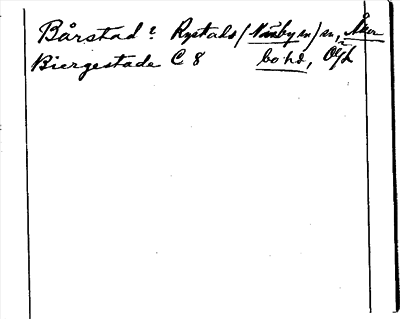 Bårstad? Rystads (Näsby sn) sn, Åker
Biergestade C 8 bo hd, Ögl